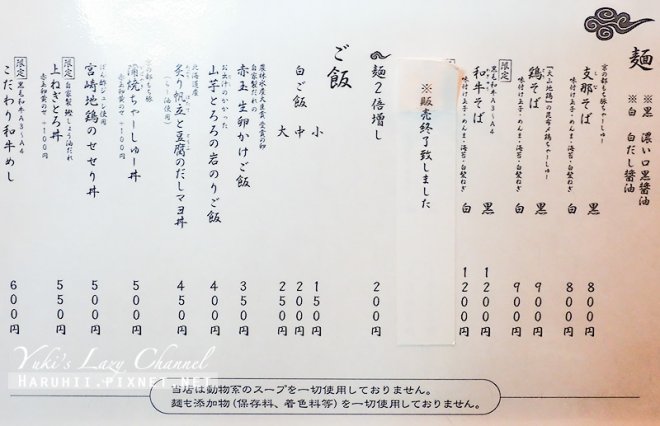 麺
※黒 濃い口黒醤油
※白 白だし醤油
京の都もち豚ちゃーしゅー
支那そば
味付け玉子・めんま・海苔・白髪ねぎ
黒 800円
白 800円
「大山地鶏」の昆布〆鶏ちゃーしゅー
鶏そば
味付け玉子・めんま・海苔・白髪ねぎ
黒 900円
白 900円
限定 黒毛和牛A3〜A4
和牛そば
味付け玉子・めんま・海苔・白髪ねぎ
黒 1200円
白 1200円
※販売終了致しました
麺2倍増し 200円
ご飯
白ご飯 小 150円
中 200円
大 250円
農林水産大臣賞 受賞の卵
自家製だれの
赤玉 生卵かけご飯 350円
お出汁のかかった
山芋とろろの岩のりご飯 400円
北海道産
炙り帆立と豆腐のだしマヨ丼 450円
(らー油使用)
京の都もち豚
蒲焼ちゃーしゅー丼 500円
赤玉卵黄のせ +100円
ぽん酢ジュレ使用
宮崎地鶏のセセリ丼 500円
限定 自家製 鰹しょう油だれ
上ねぎとろ丼 550円
赤玉卵黄のせ +100円
限定 黒毛和牛A3〜A4
こだわり和牛めし 600円
Yuki's Lazy Channel
Haruhii.pixnet.net
当店は動物系のスープを一切使用しておりません。
麺も添加物(保存料、着色料等)を一切使用しておりません。